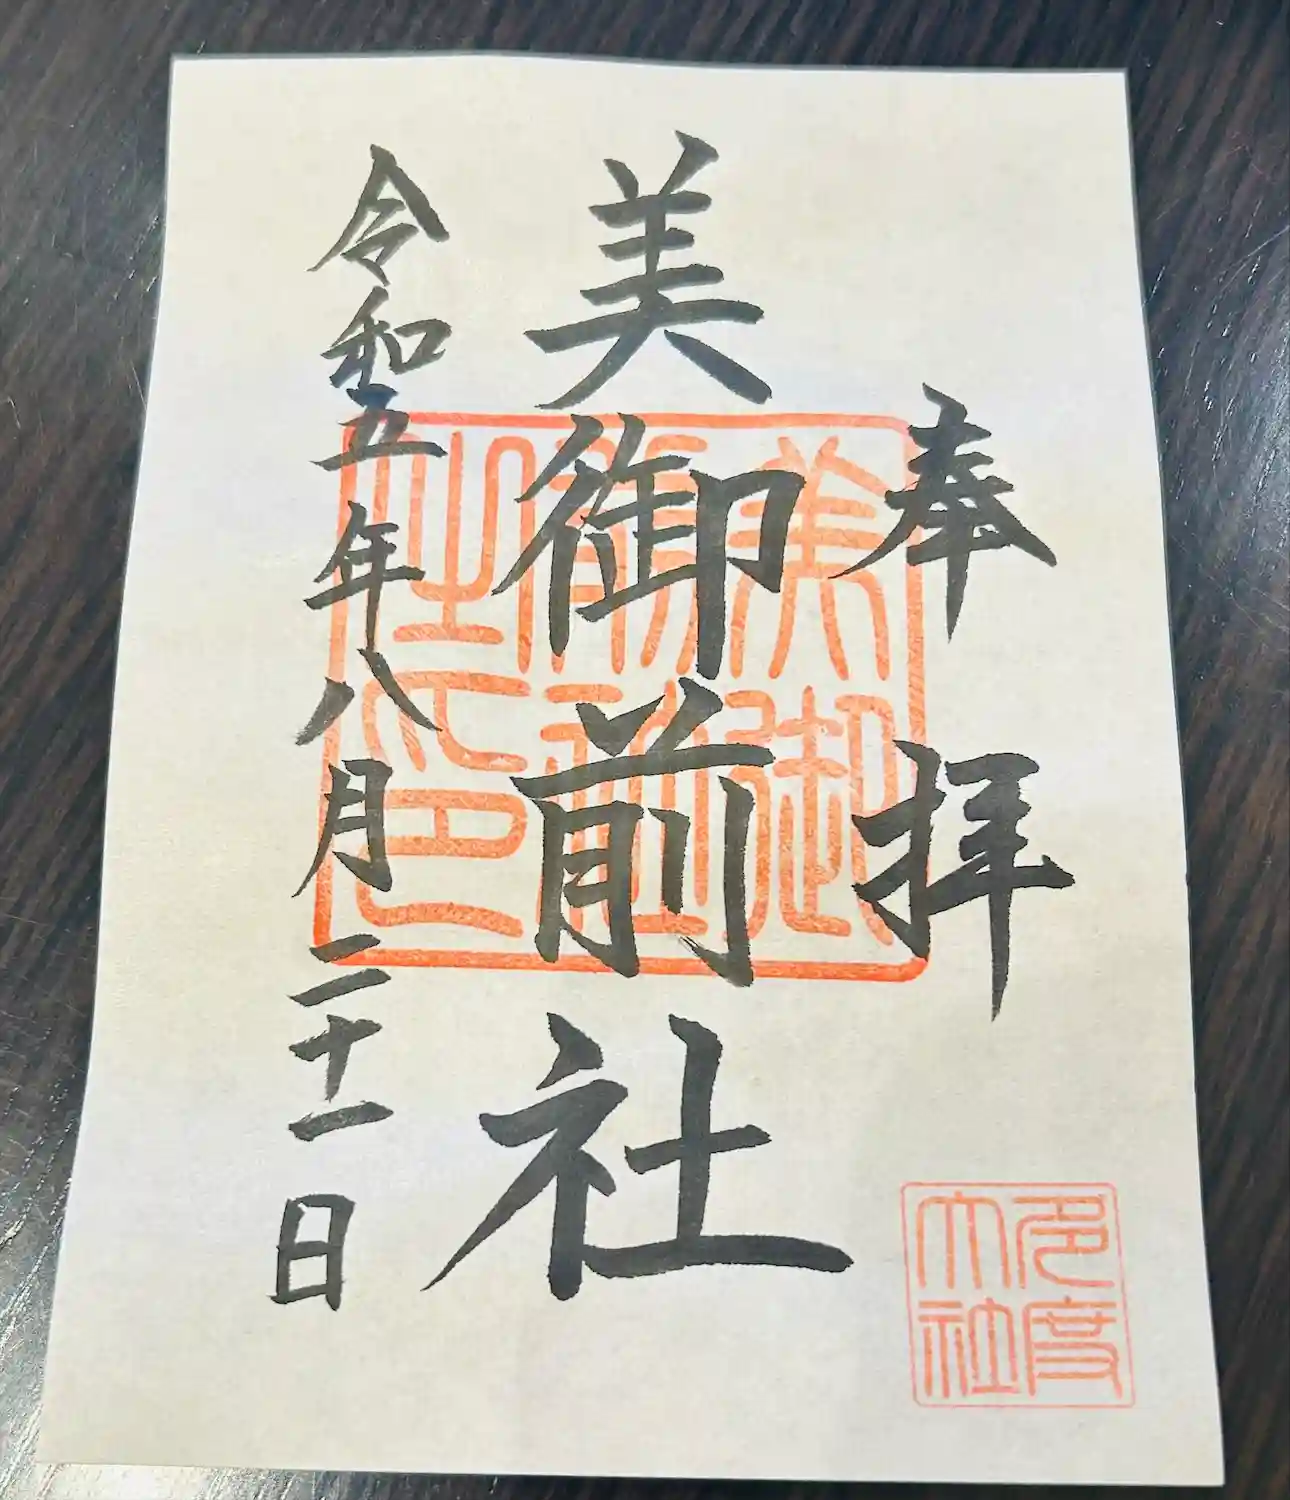 奉拝
美御前社
令和五年八月二十一日
美御
前社
之印
多度
大社